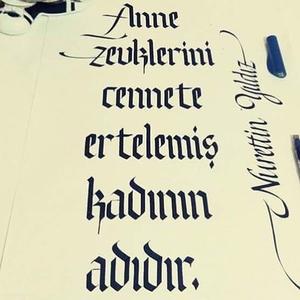 Anne
zevklerini
cennete
ertelemiş
kadının
adıdır.
Nurettin Yıldız